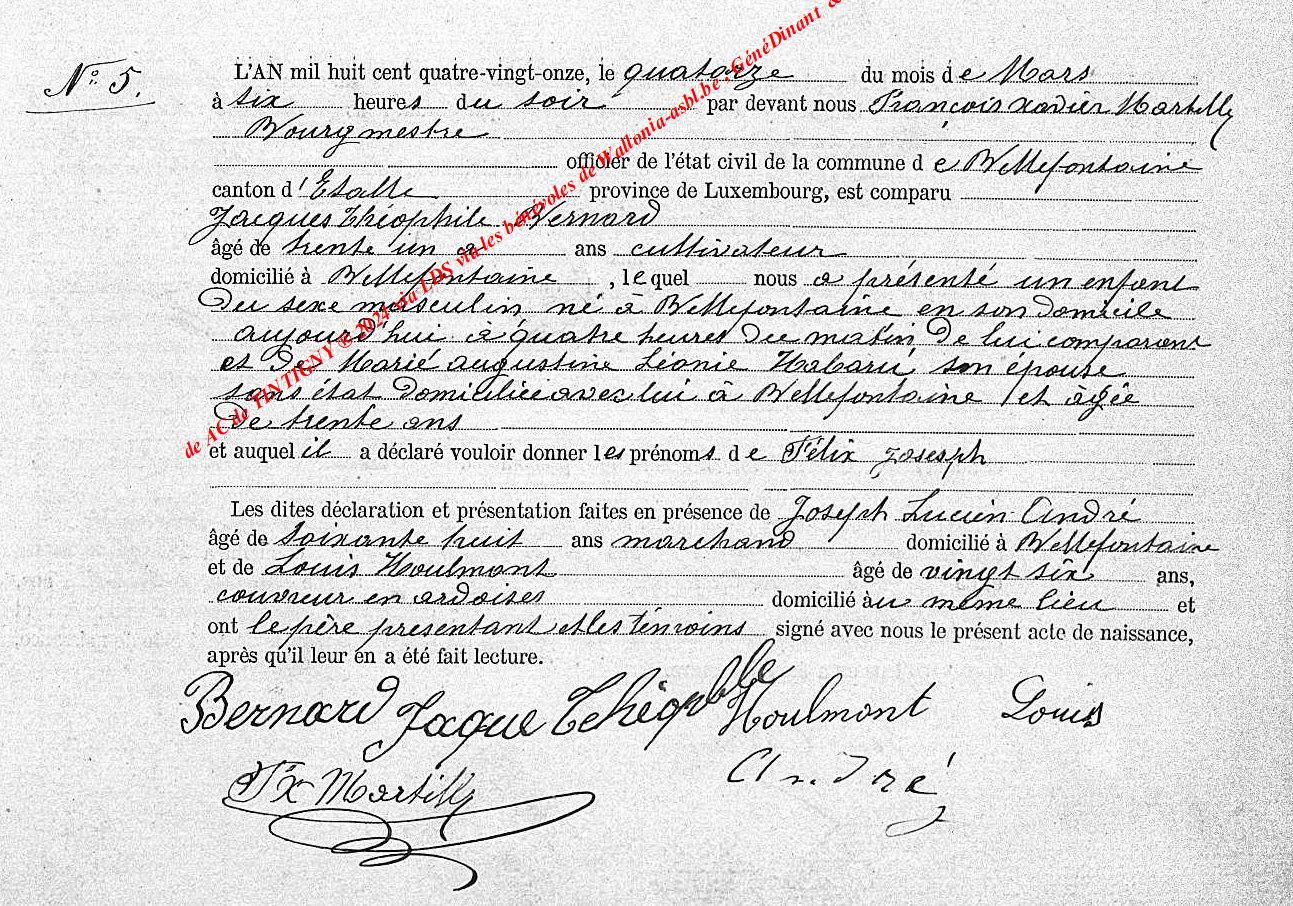 N° 5.
L'AN mil huit cent quatre-vingt-onze, le quatorze du mois de Mars
à six heures du soir par devant nous François xavier Martilly
Bourgmestre
officier de l'état civil de la commune de Bellefontaine
canton d'Etalle province de Luxembourg, est comparu
Jacques Théophile Bernard
âgé de trente un ans cultivateur
domicilié à Bellefontaine, lequel nous a présenté un enfant
du sexe masculin né à Bellefontaine en son domicile
aujourd'hui à quatre heures du matin de lui comparant
et de Marie augustine Léonie Habaru son épouse
sans état domiciliée avec lui à Bellefontaine et âgée
de trente ans
et auquel il a déclaré vouloir donner les prénoms de Félix Josesph
Les dites déclaration et présentation faites en présence de Joseph Lucien André
âgé de soixante huit ans marchand domicilié à Bellefontaine
et de Louis Houlmont âgé de vingt six ans,
couvreur en ardoises domicilié àu même lieu et
ont le père présentant et les témoins signé avec nous le présent acte de naissance,
après qu'il leur en a été fait lecture.
Bernard Jaque Houlmont Louis
Fx Martilly André
de AC de TINTIGNY ® 2024 via LDS via les bénévoles de Wallonia-asbl.be, GénéDinant &